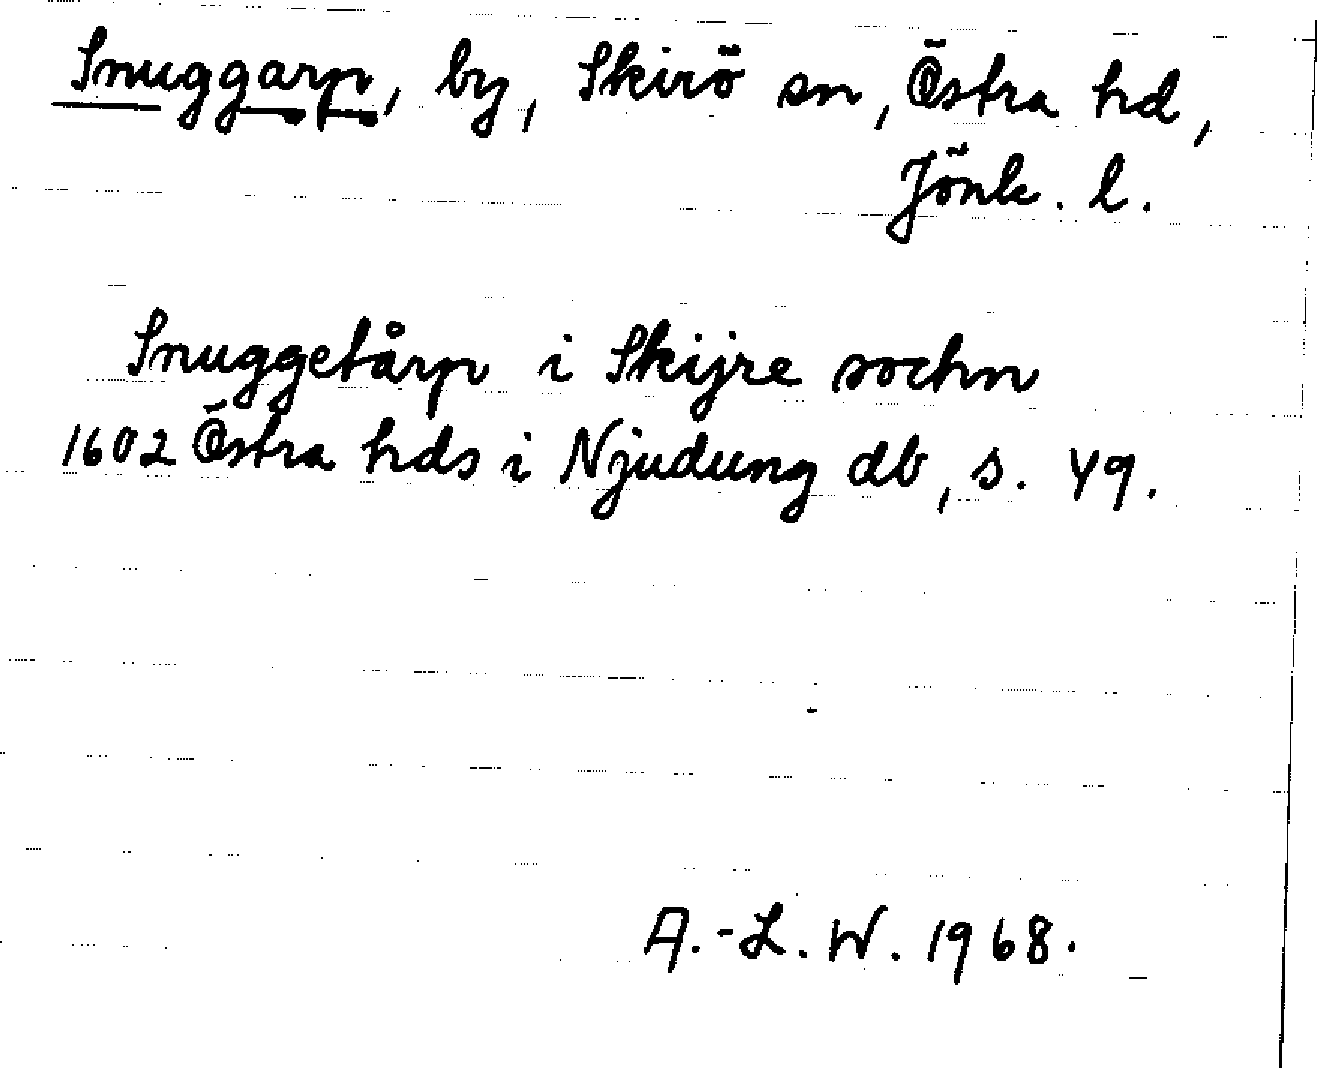 Snuggarp, by, Skirö sn, Östra hd,
Jönk. l.
Snuggetårp i Skijre sochn
1602 Östra hds i Njudung db, s. 49.
A.-L. W. 1968.